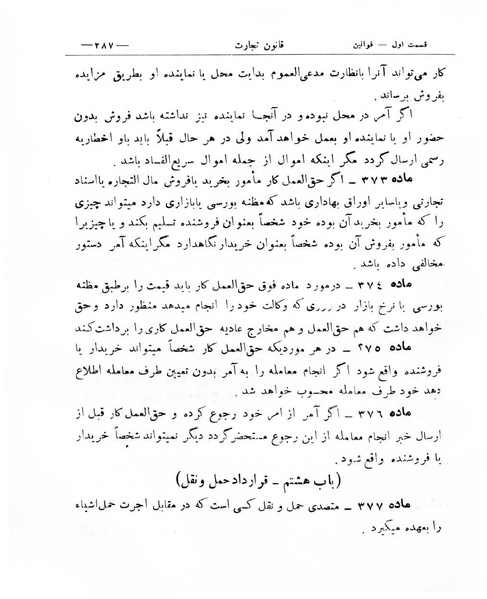 قسمت اول — قوانین قانون تجارت —۲۸۷—
کار می‌تواند آنرا بانظارت مدعی‌العموم بدایت محل یا نماینده او بطریق مزایده
بفروش برساند.
اگر آمر در محل نبوده و در آنجا نماینده نیز نداشته باشد فروش بدون
حضور او یا نماینده او بعمل خواهد آمد ولی در هر حال قبلاً باید باو اخطاریه
رسمی ارسال گردد مگر اینکه اموال از جمله اموال سریع‌الفساد باشد.
ماده ۳۷۳ — اگر حق‌العمل کار مأمور بخرید یافروش مال التجاره یااسناد
تجارتی ویاسایر اوراق بهاداری باشد که مظنه بورسی یابازاری دارد میتواند چیزی
را که مأمور بخرید آن بوده خود شخصاً بعنوان فروشنده تسلیم بکند و یاچیزیرا
که مأمور بفروش آن بوده شخصاً بعنوان خریدار نگاهدارد مگر اینکه آمر دستور
مخالفی داده باشد.
ماده ۳۷٤ — درمورد ماده فوق حق‌العمل کار باید قیمت را برطبق مظنه
بورسی یا نرخ بازار در روزی که وکالت خود را انجام میدهد منظور دارد و حق
خواهد داشت که هم حق‌العمل و هم مخارج عادیه حق‌العمل کاری را برداشت کند
ماده ۲۷۵ — در هر موردیکه حق‌العمل کار شخصاً میتواند خریدار یا
فروشنده واقع شود اگر انجام معامله را به آمر بدون تعیین طرف معامله اطلاع
دهد خود طرف معامله محسوب خواهد شد.
ماده ۳۷٦ — اگر آمر از امر خود رجوع کرده و حق‌العمل کار قبل از
ارسال خبر انجام معامله از این رجوع مستحضر گردد دیگر نمیتواند شخصاً خریدار
یا فروشنده واقع شود.
(باب هشتم — قرارداد حمل و نقل)
ماده ۳۷۷ — متصدی حمل و نقل کسی است که در مقابل اجرت حمل اشیاء
را بعهده میگیرد.